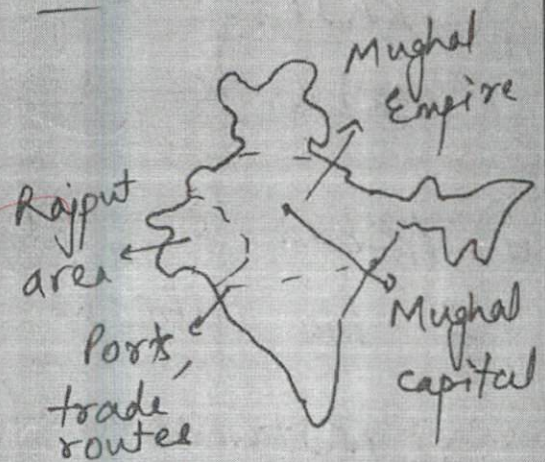 Mughal
Empire
Rajput
area
Ports,
trade
routes
Mughal
capital